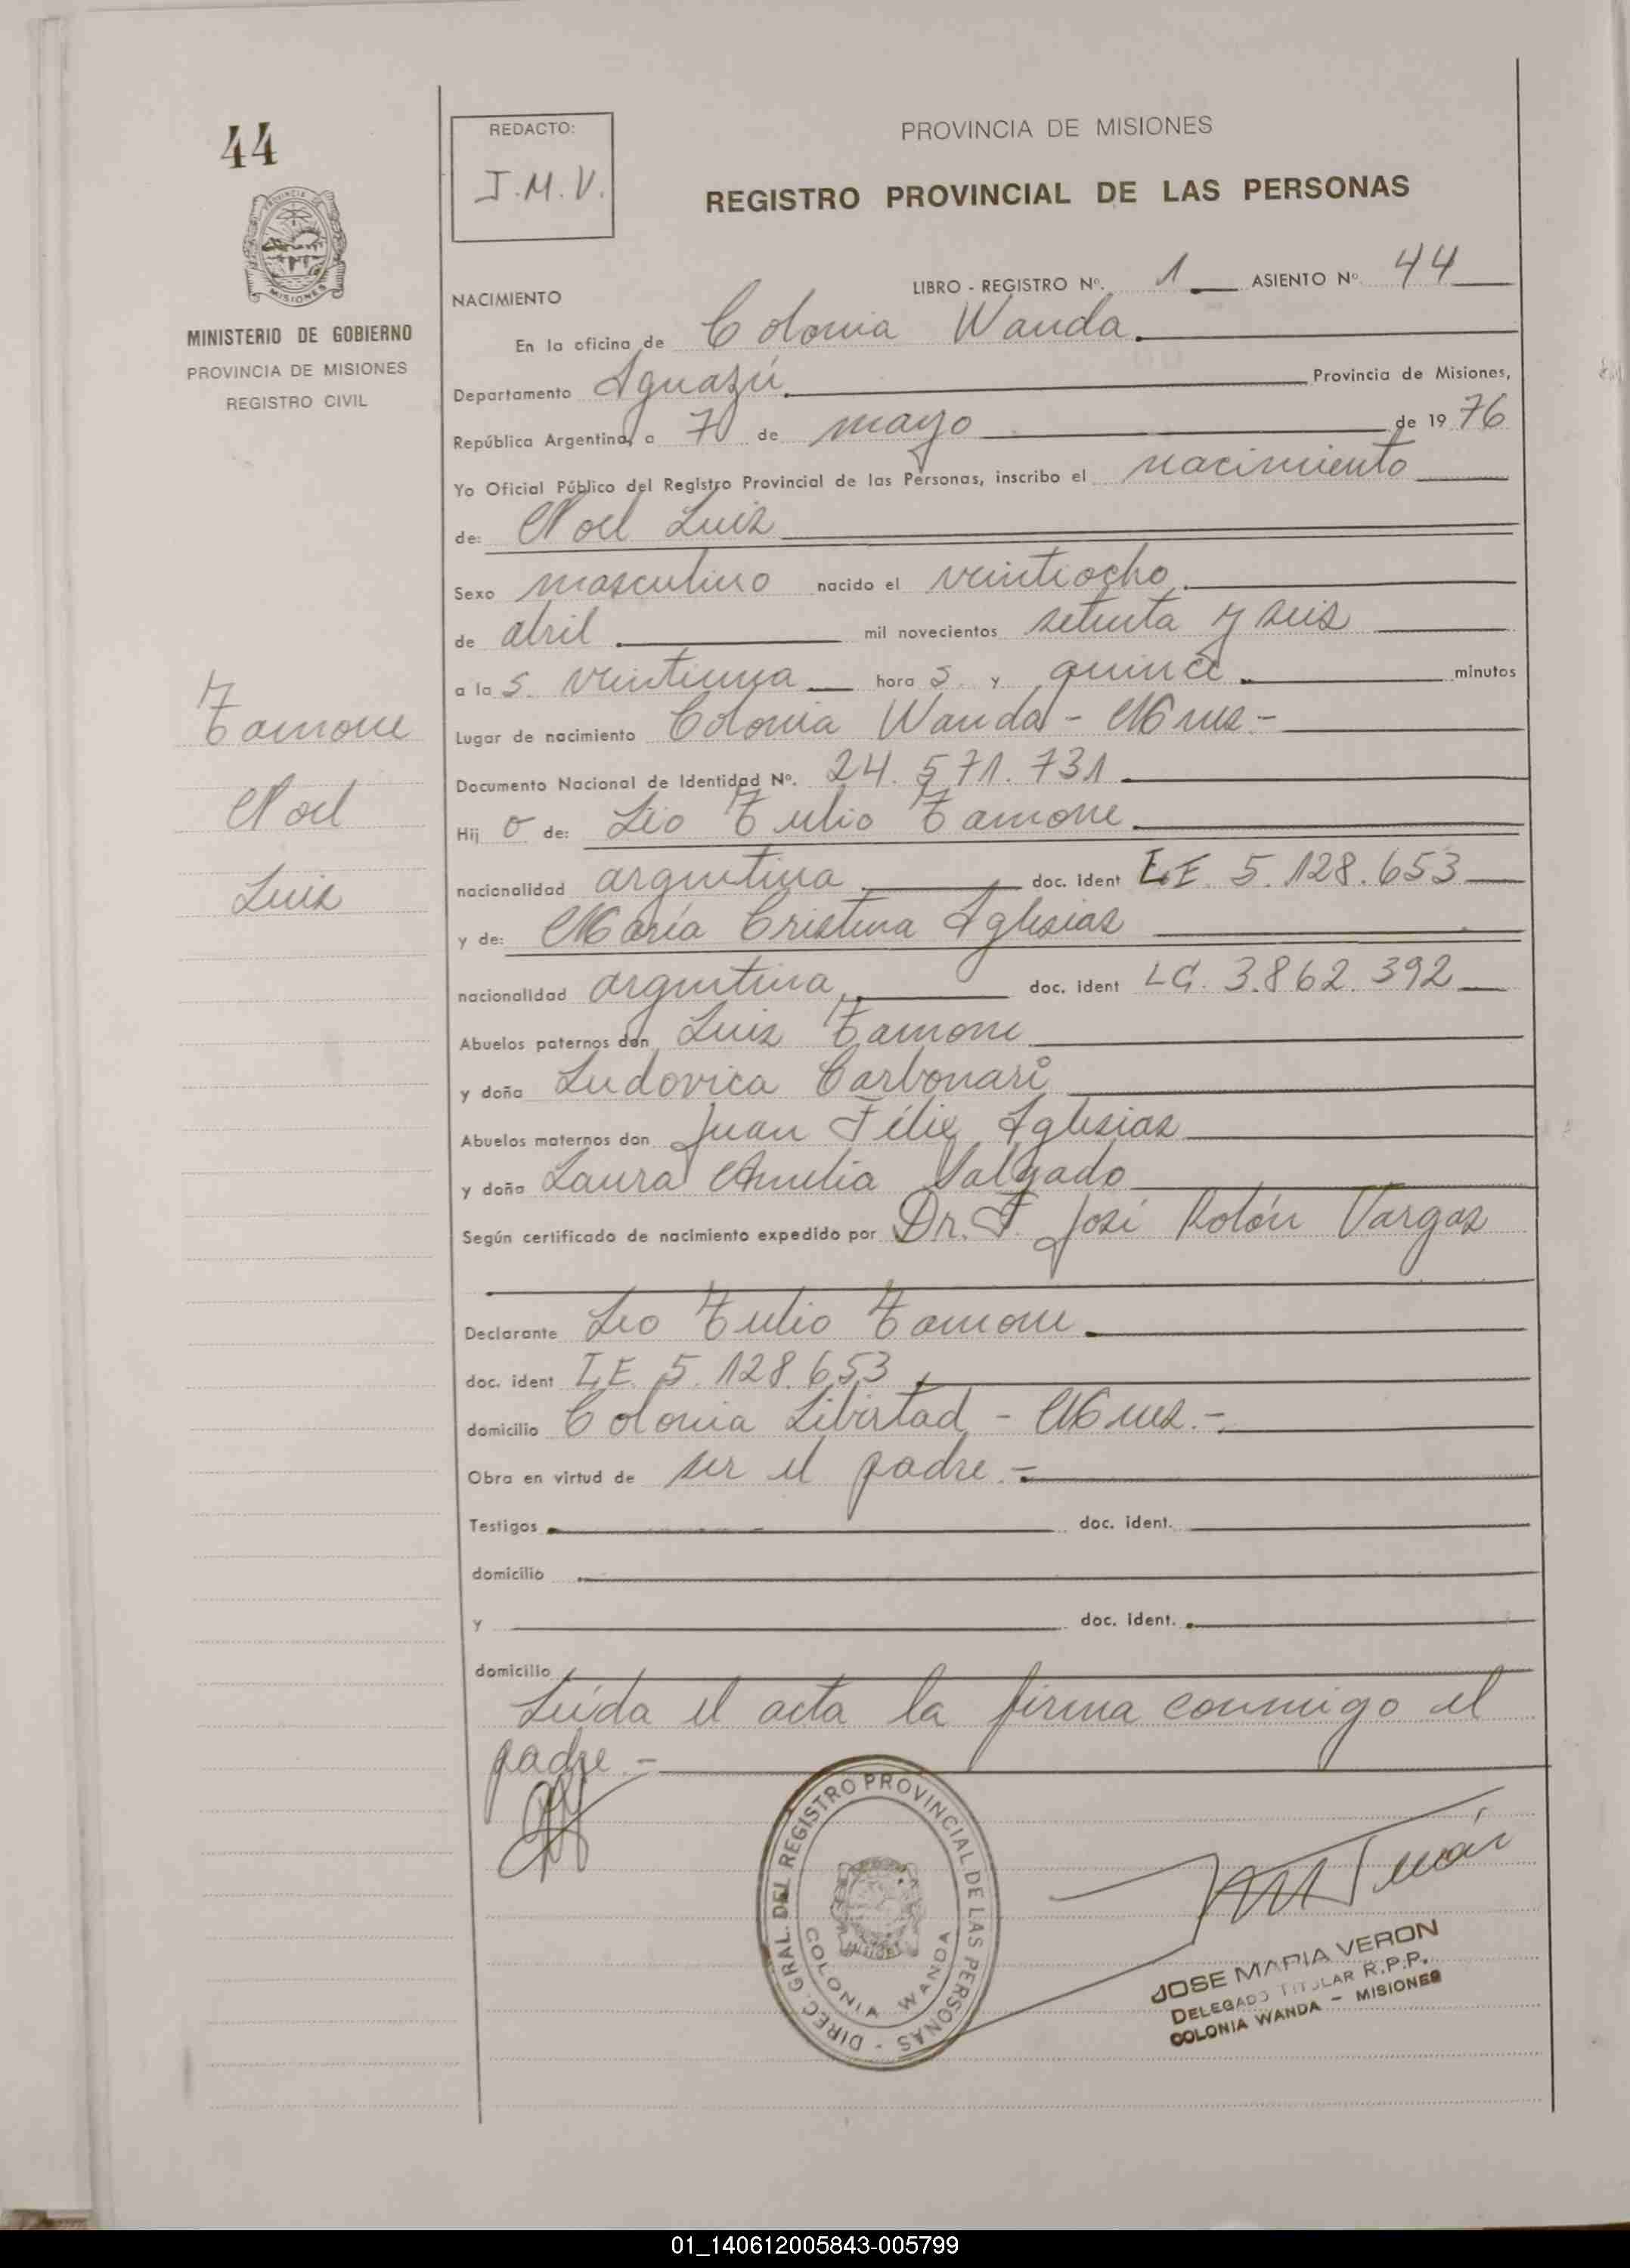 44
PROVINCIA DE
MISIONES
MINISTERIO DE GOBIERNO
PROVINCIA DE MISIONES
REGISTRO CIVIL
Tamone
Noel
Luis
REDACTO:
J.M.V.
PROVINCIA DE MISIONES
REGISTRO PROVINCIAL DE LAS PERSONAS
LIBRO - REGISTRO Nº. 1 ASIENTO Nº 44
NACIMIENTO
En la oficina de Colonia Wanda.
Departamento Iguazú. Provincia de Misiones,
República Argentina, a 7 de mayo de 1976
Yo Oficial Público del Registro Provincial de las Personas, inscribo el nacimiento
de: Noel Luis
Sexo masculino nacido el veintiocho.
de abril. mil novecientos setenta y seis
a las. veintiuna hora s y quince. minutos
Lugar de nacimiento Colonia Wanda - Mnes.-
Documento Nacional de Identidad Nº. 24.571.731.
Hij o de: Leo Tulio Tamone.
nacionalidad argentina. doc. Ident L.E. 5.128.653
y de: María Cristina Iglesias
nacionalidad argentina. doc. Ident LC. 3.862.392
Abuelos paternos don Luis Tamone
y doña Ludovica Carbonari
Abuelos maternos don Juan Félix Iglesias
y doña Laura Amelia Salgado
Según certificado de nacimiento expedido por Dr. F. José Rolón Vargas
Declarante Leo Tulio Tamone.
doc. ident L.E. 5.128.653.
domicilio Colonia Libertad - Mnes.-
Obra en virtud de ser el padre.-
Testigos doc. ident.
domicilio
y doc. ident.
domicilio
Leída el acta la firma conmigo el
padre.-
DIREC. GRAL. DEL REGISTRO PROVINCIAL DE LAS PERSONAS -
COLONIA WANDA
JOSE MARIA VERON
DELEGADO TITULAR R.P.P.
COLONIA WANDA - MISIONES
01_140612005843-005799